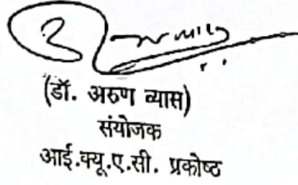 (डॉ. अरुण व्यास)
संयोजक
आई.क्यू.ए.सी. प्रकोष्ठ